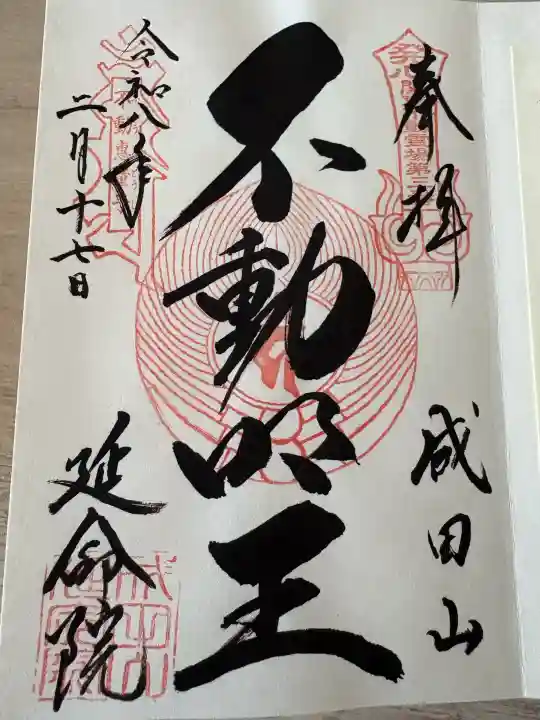 奉拝
成田山
不動明王
令和八年
二月十七日
延命院